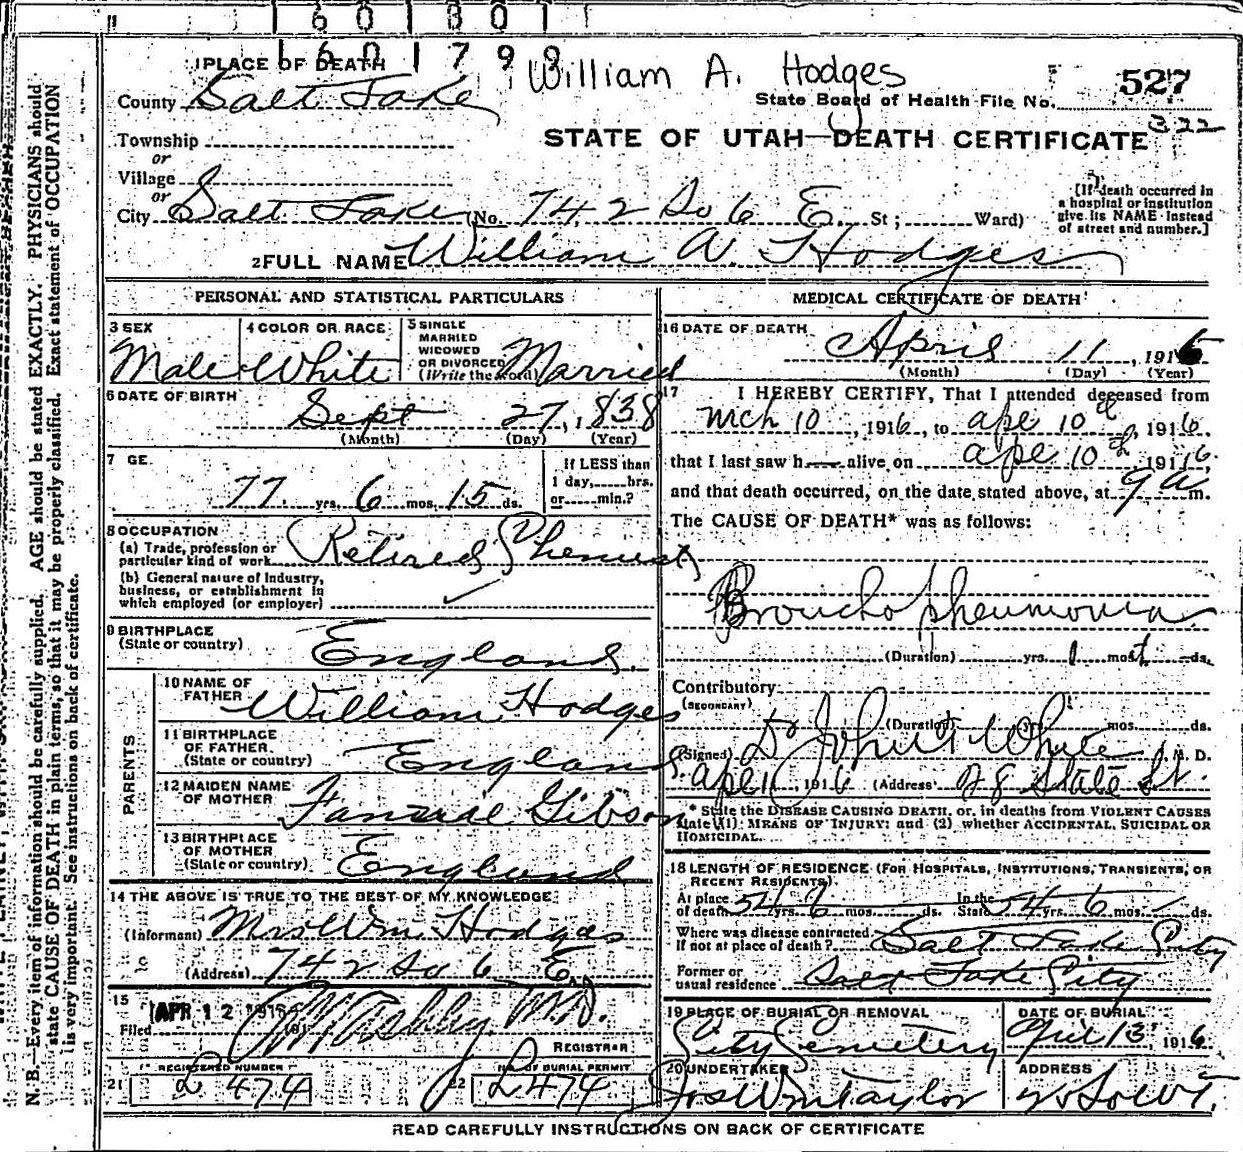 1 6 0 1 3 0 1
1 6 0 1 7 9 9
1 PLACE OF DEATH William A. Hodges 527
County Salt Lake State Board of Health File No. 322
Township
or STATE OF UTAH—DEATH CERTIFICATE
Village
or
City Salt Lake (No. 742 So 6 E. St; Ward)
[If death occurred in
a hospital or institution
give its NAME instead
of street and number.]
2 FULL NAME William A. Hodges
PERSONAL AND STATISTICAL PARTICULARS
3 SEX
Male
4 COLOR OR RACE
White
5 SINGLE
MARRIED
WIDOWED
OR DIVORCED
(Write the word) Married
6 DATE OF BIRTH
Sept 27, 1838
(Month) (Day) (Year)
7 GE
77 yrs. 6 mos. 15 ds.
If LESS than
1 day, hrs.
or min.?
8 OCCUPATION
(a) Trade, profession or
particular kind of work Retired
(b) General nature of Industry,
business, or establishment in
which employed (or employer)
9 BIRTHPLACE
(State or country) England.
PARENTS
10 NAME OF
FATHER William Hodges
11 BIRTHPLACE
OF FATHER
(State or country) England
12 MAIDEN NAME
OF MOTHER Gibson
13 BIRTHPLACE
OF MOTHER
(State or country) England
14 THE ABOVE IS TRUE TO THE BEST OF MY KNOWLEDGE
(Informant) Mrs Wm Hodges
(Address) 742 So 6 E.
15
Filed APR 12 1916 M.D.
REGISTRAR
REGISTERED NUMBER
21 L 474
NO. OF BURIAL PERMIT
22 L 474
MEDICAL CERTIFICATE OF DEATH
16 DATE OF DEATH
April 11, 1916
(Month) (Day) (Year)
17 I HEREBY CERTIFY, That I attended deceased from
Mch 10, 1916, to Apr 10th, 1916.
that I last saw h alive on Apr 10th 1916,
and that death occurred, on the date stated above, at 9 a m.
The CAUSE OF DEATH* was as follows:
Broncho pneumonia
(Duration) yrs. 1 mos. ds.
Contributory
(SECONDARY)
(Duration) yrs. mos. ds.
(Signed) White M. D.
Apr 11, 1916 (Address) State St.
* State the DISEASE CAUSING DEATH, or, in deaths from VIOLENT CAUSES
state (1) MEANS OF INJURY; and (2) whether ACCIDENTAL, SUICIDAL OR
HOMICIDAL.
18 LENGTH OF RESIDENCE (FOR HOSPITALS, INSTITUTIONS, TRANSIENTS, OR
RECENT RESIDENTS)
At place
of death 54 yrs. 6 mos. ds. In the
State 54 yrs. 6 mos. ds.
Where was disease contracted
If not at place of death? Salt Lake City
Former or
usual residence Salt Lake City
19 PLACE OF BURIAL OR REMOVAL
City Cemetery
DATE OF BURIAL
April 13, 1916
20 UNDERTAKER
Jos Wm Taylor
ADDRESS
READ CAREFULLY INSTRUCTIONS ON BACK OF CERTIFICATE
N. B.—Every item of information should be carefully supplied. AGE should be stated EXACTLY. PHYSICIANS should
state CAUSE OF DEATH in plain terms, so that it may be properly classified. Exact statement of OCCUPATION
is very important. See instructions on back of certificate.